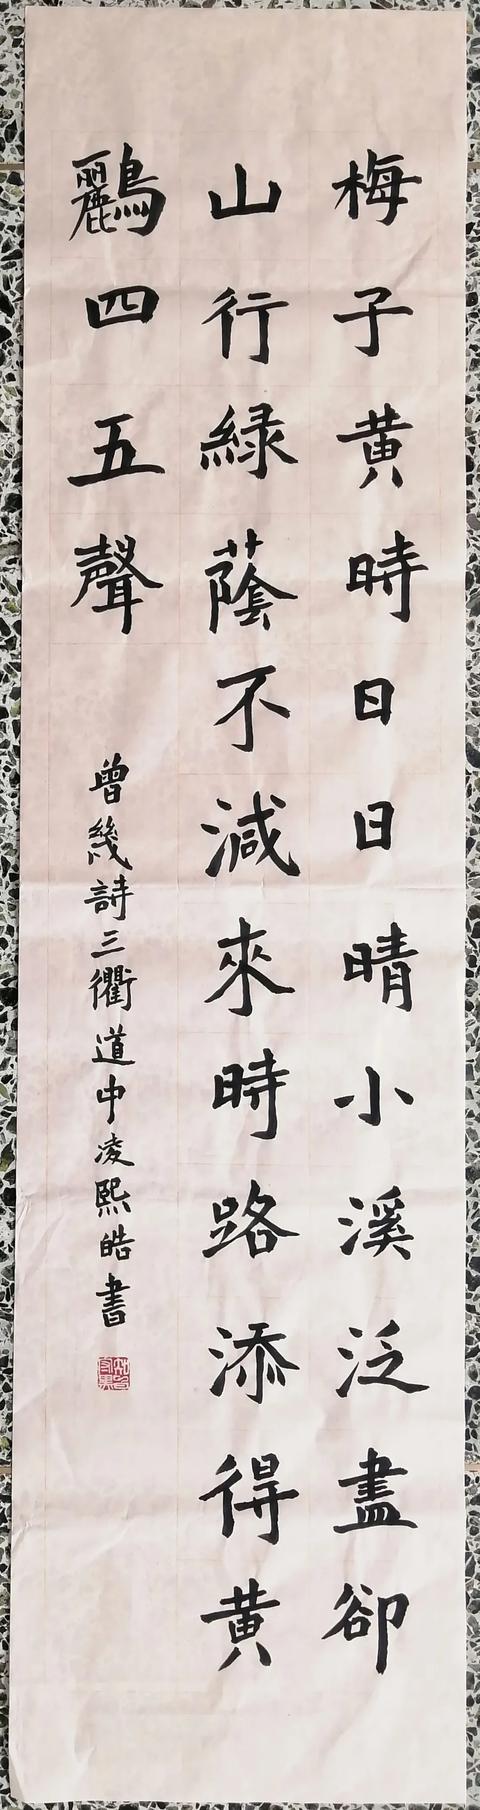 梅子黄時日日晴小溪泛盡卻
山行緑蔭不減來時路添得黄
鸝四五聲
曾幾詩三衢道中凌熙皓書